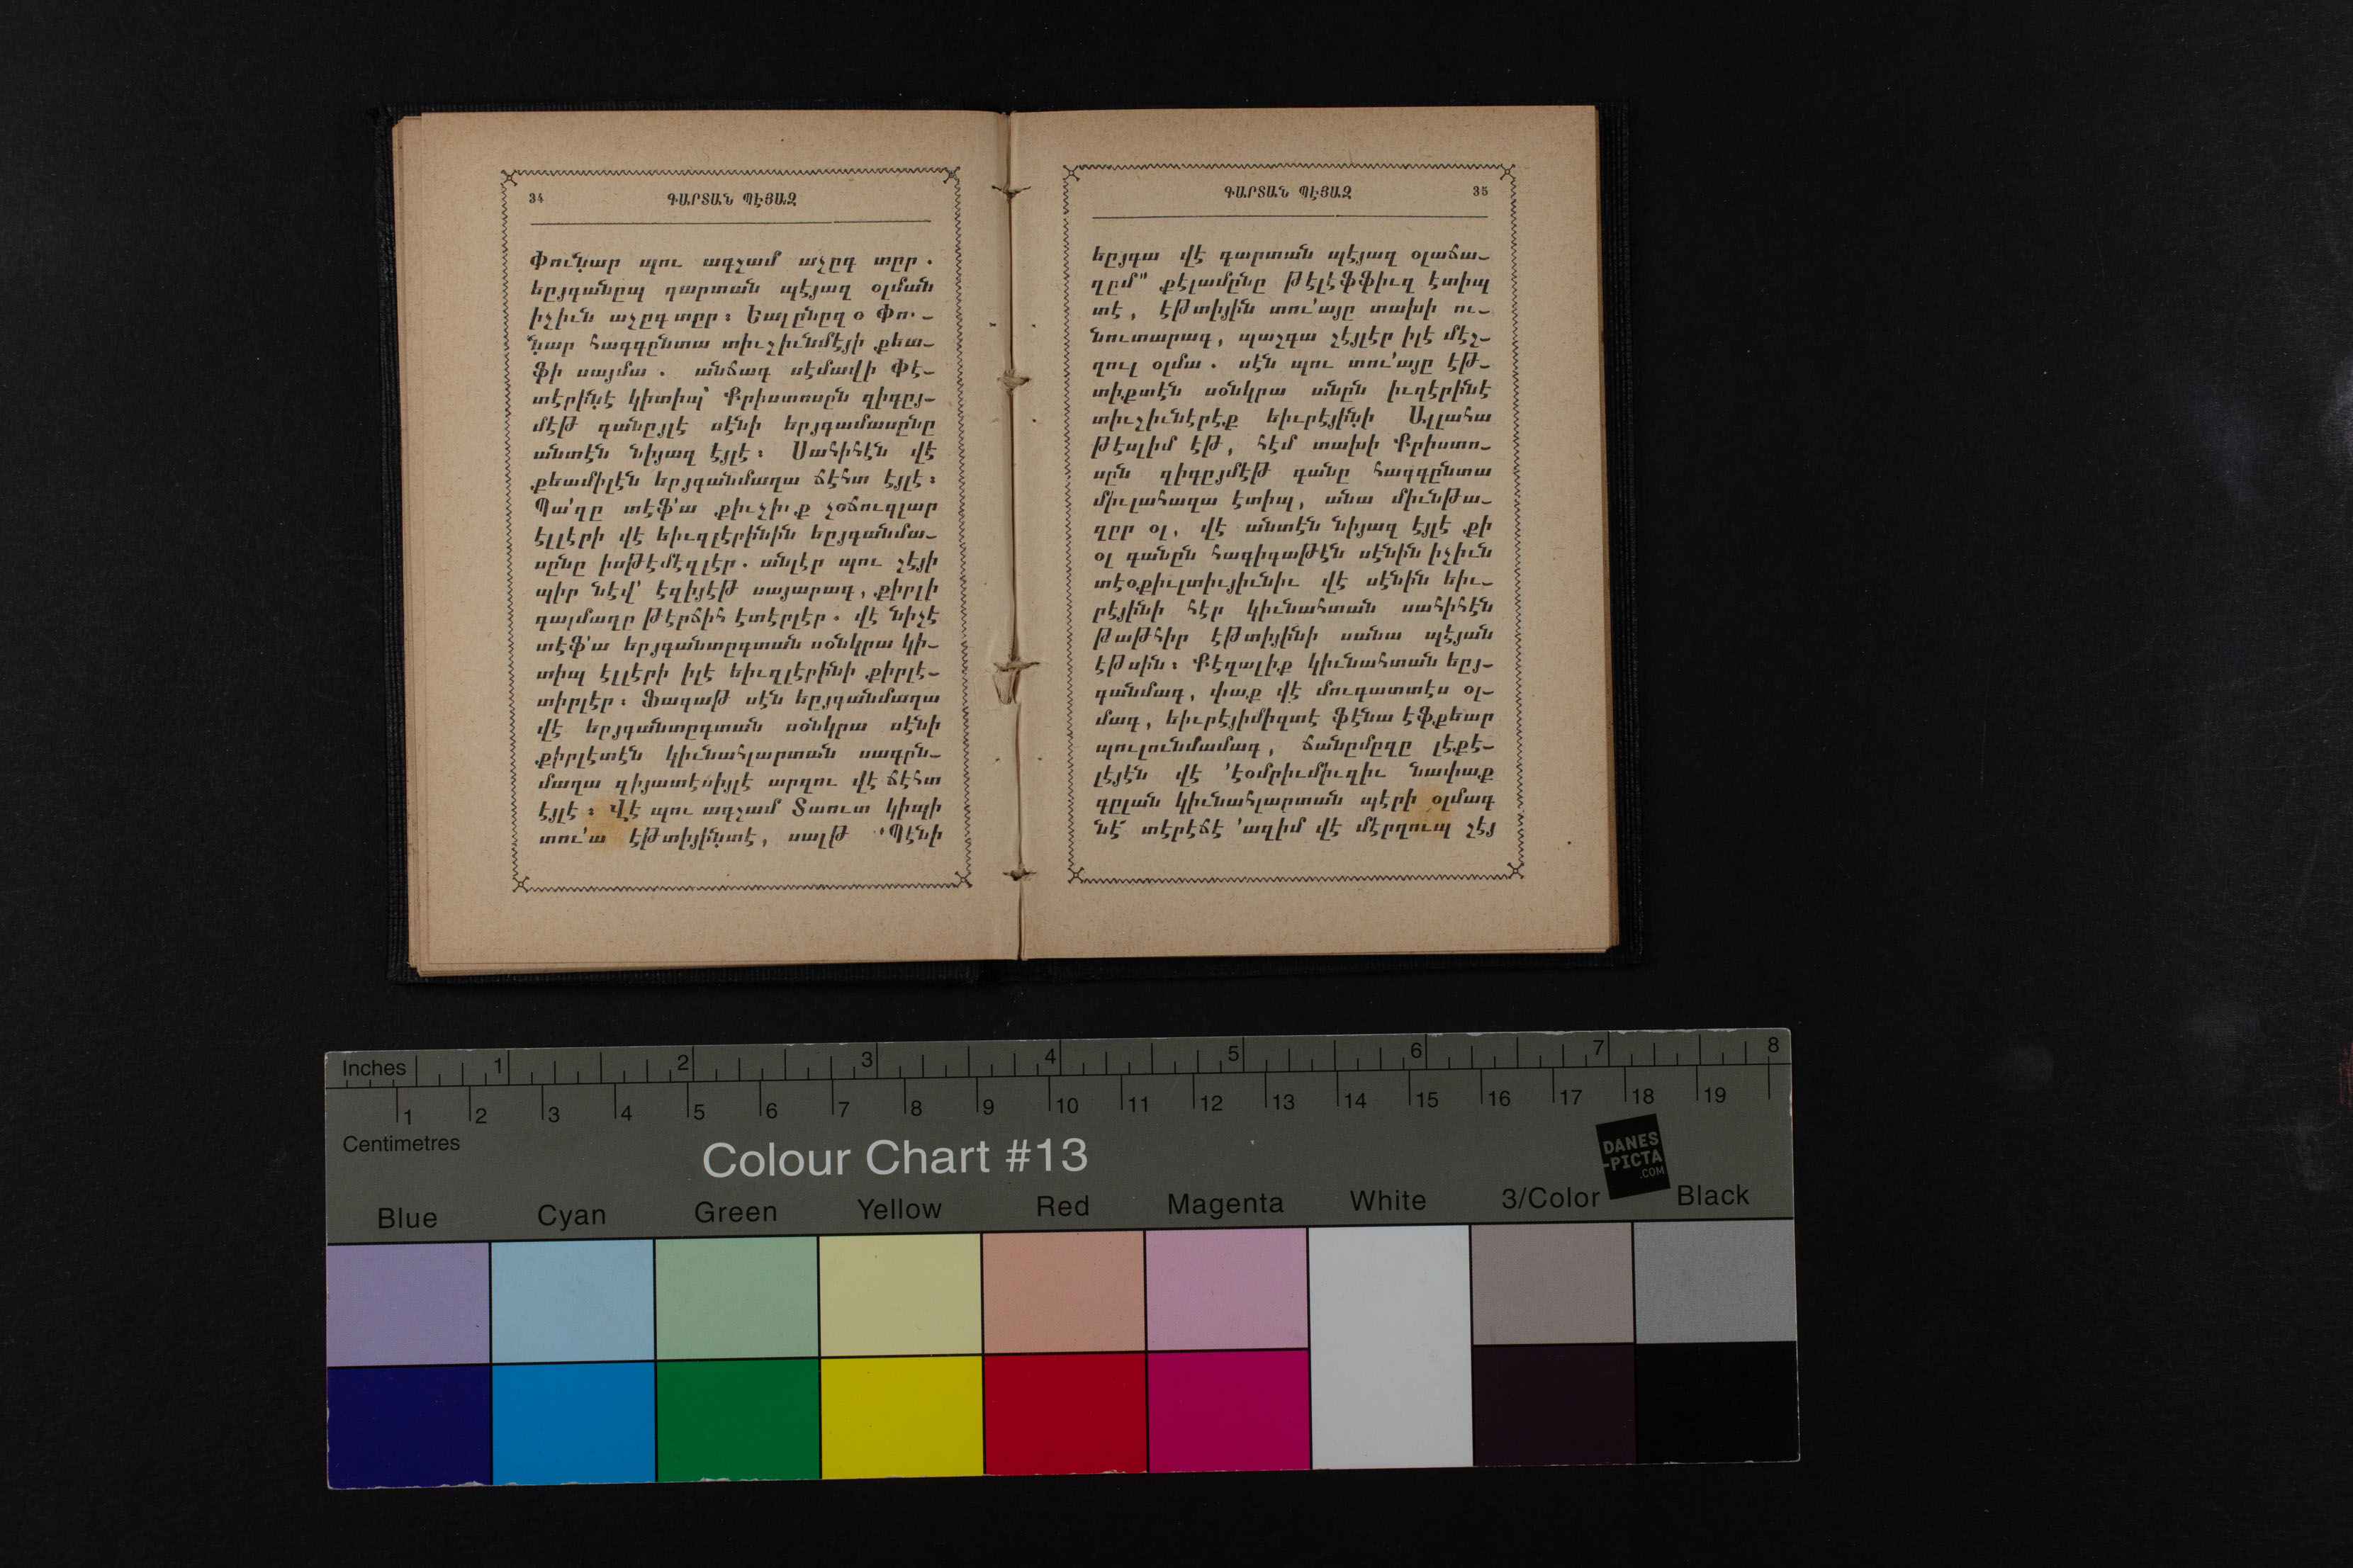 34 ԳԱՐՏԱՆ ՊԷՅԱԶ
Փունար պու ագշամ աչըգ տըր .
եըյգանըպ ղարտան պէյազ օլման
իչիւն աչըգ տըր ։ Եալընըզ օ Փու֊
նար հագգընտա տիւշիւնմէյի քեա֊
ֆի սայմա . անճագ սէմավի Փէ֊
տէրինէ կիտիպ՝ Քրիստոսըն զիգըյ֊
մէթ գանըյլէ սէնի երյգամասընը
անտէն նիյազ էյլէ ։ Սահիհէն վէ
քեամիլէն երյգանմաղա ճէհտ էյլէ ։
Պա՛զը տէֆ՛ա քիւչիւք չօճուզլար
էլլէրի վէ եիւզլէրինին երյգանմա֊
սընը իսթէմէզլէր . անլէր պու շէյի
պիր նէվ՛ էզիյէթ սայարագ , քիրլի
գալմաղը թէրճիհ էտէրլէր . վէ նիչէ
տէֆ՛ա երյգանտըգտան սօնկրա կի֊
տիպ էլլէրի իլէ եիւզլէրինի քիրլէ֊
տիրլէր ։ Ֆագաթ սէն երյգանմաղա
վէ երյգանտըգտան սօնկրա սէնի
քիրլէտէն կիւնահլարտան սագըն֊
մաղա զիյատէսիյլէ արզու վէ ճէհտ
էյլէ ։ Վէ պու ագշամ Տաուտ կիպի
տու՛ա էթտիյինտէ , սալթ "Պէնի
ԳԱՐՏԱՆ ՊԷՅԱԶ 35
երյգա վէ գարտան պէյազ օլաճա֊
ղըմ" քէլամընը թէլէֆֆիւզ էտիպ
տէ , էթտիյին տու՛այը տախի ու֊
նուտարագ , պաշգա շէյլէր իլէ մէշ֊
ղուլ օլմա . սէն պու տու՛այը էթ֊
տիքտէն սօնկրա անըն իւզէրինէ
տիւշիւնէրէք եիւրէյինի Ալլահա
թէսլիմ էթ , հէմ տախի Քրիստո֊
սըն զիգըյմէթ գանը հագգընտա
միւլահազա էտիպ , անա միւնթա֊
զըր օլ , վէ անտէն նիյազ էյլէ քի
օլ գանըն հագիգաթէն սէնին իչիւն
տէօքիւլտիւյիւնիւ վէ սէնին եիւ֊
րէյինի հէր կիւնահտան սահիհէն
թաթհիր էթտիյինի սանա պէյան
էթսին ։ Քէզալիք կիւնահտան երյ֊
գանմագ , փաք վէ մուգատտէս օլ֊
մագ , եիւրէյիմիզտէ ֆէնա էֆքեար
պուլունմամագ , ճանըմըզը լէքէ֊
լէյէն վէ ՛էօմրիւմիւզիւ նափաք
գըլան կիւնահլարտան պէրի օլմագ
նէ տէրէճէ ՛ազիմ վէ մէրղուպ շէյ
Inches 1 2 3 4 5 6 7 8
1 2 3 4 5 6 7 8 9 10 11 12 13 14 15 16 17 18 19
Centimetres
Colour Chart #13
DANES
-PICTA
.COM
Blue Cyan Green Yellow Red Magenta White 3/Color Black